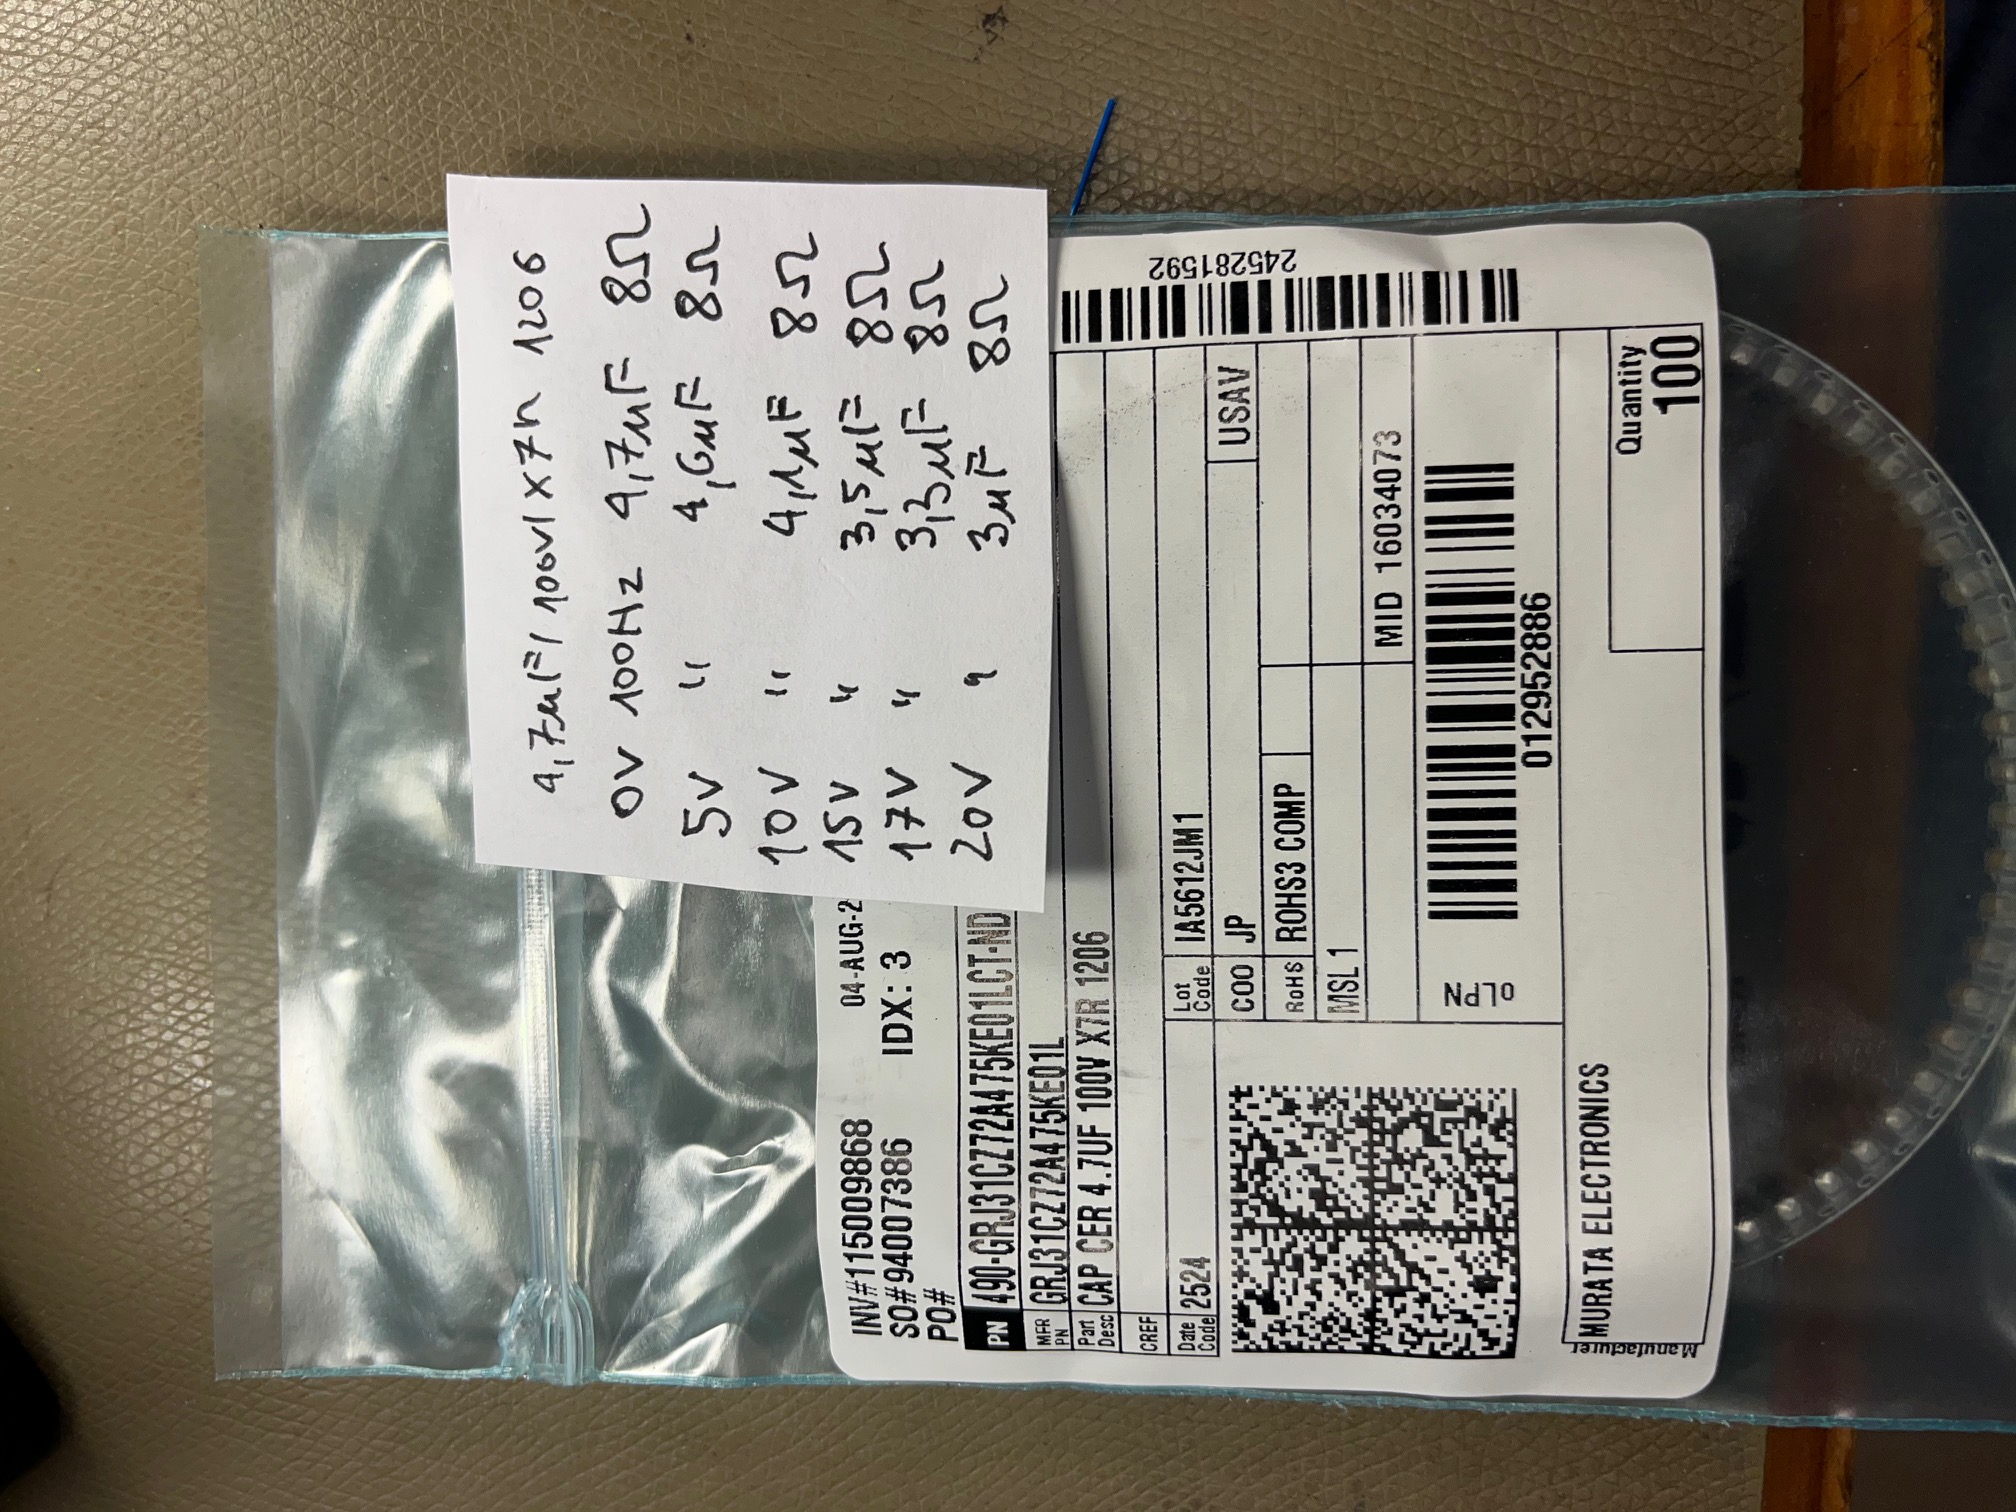 4,7µF/ 100V/ X7R 1206
0V 100Hz 4,7µF 8Ω
5V " 4,6µF 8Ω
10V " 4,1µF 8Ω
15V " 3,5µF 8Ω
17V " 3,3µF 8Ω
20V " 3µF 8Ω
INV#115009868 04-AUG-2
SO#94007386 IDX: 3
PO#
PN 490-GRJ31CZ72A475KE01LCT-ND
MFR PN GRJ31CZ72A475KE01L
Part Desc CAP CER 4.7UF 100V X7R 1206
CREF
Date Code 2524 Lot Code IA5612JM1
COO JP USAV
RoHS ROHS3 COMP
MSL 1
MID 16034073
oLPN
012952886
245281592
Manufacturer MURATA ELECTRONICS
Quantity
100